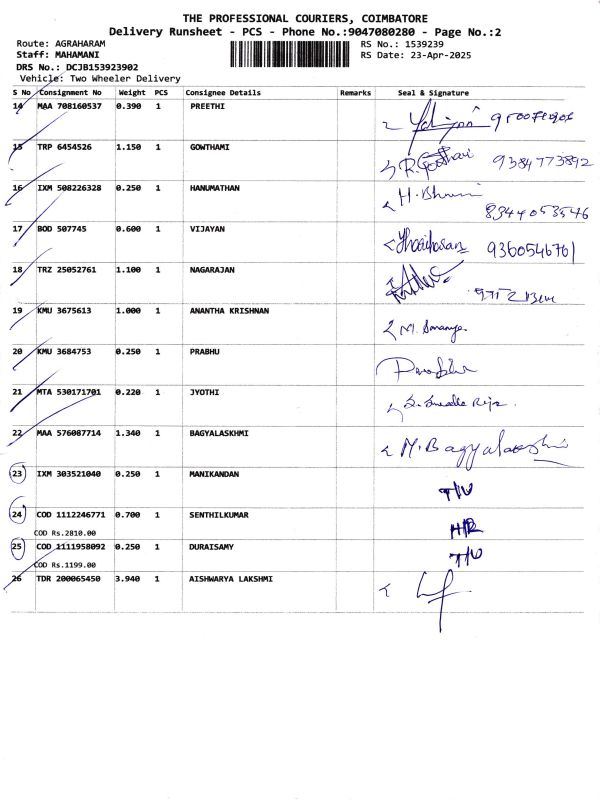 THE PROFESSIONAL COURIERS, COIMBATORE
Delivery Runsheet - PCS - Phone No.:9047080280 - Page No.:2
Route: AGRAHARAM RS No.: 1539239
Staff: MAHAMANI RS Date: 23-Apr-2025
DRS No.: DCJB153923902
Vehicle: Two Wheeler Delivery
S No Consignment No Weight PCS Consignee Details Remarks Seal & Signature
14 MAA 708160537 0.390 1 PREETHI
15 TRP 6454526 1.150 1 GOWTHAMI 9384773892
16 IXM 508226328 0.250 1 HANUMATHAN
8344053546
17 BOD 507745 0.600 1 VIJAYAN 9360546761
18 TRZ 25052761 1.100 1 NAGARAJAN
19 KMU 3675613 1.000 1 ANANTHA KRISHNAN
20 KMU 3684753 0.250 1 PRABHU
21 MTA 530171701 0.220 1 JYOTHI
22 MAA 576087714 1.340 1 BAGYALASKHMI M. Bagyalakshmi
23 IXM 303521040 0.250 1 MANIKANDAN
24 COD 1112246771 0.700 1 SENTHILKUMAR
COD Rs.2810.00
25 COD 1111958092 0.250 1 DURAISAMY
COD Rs.1199.00
26 TDR 200065450 3.940 1 AISHWARYA LAKSHMI